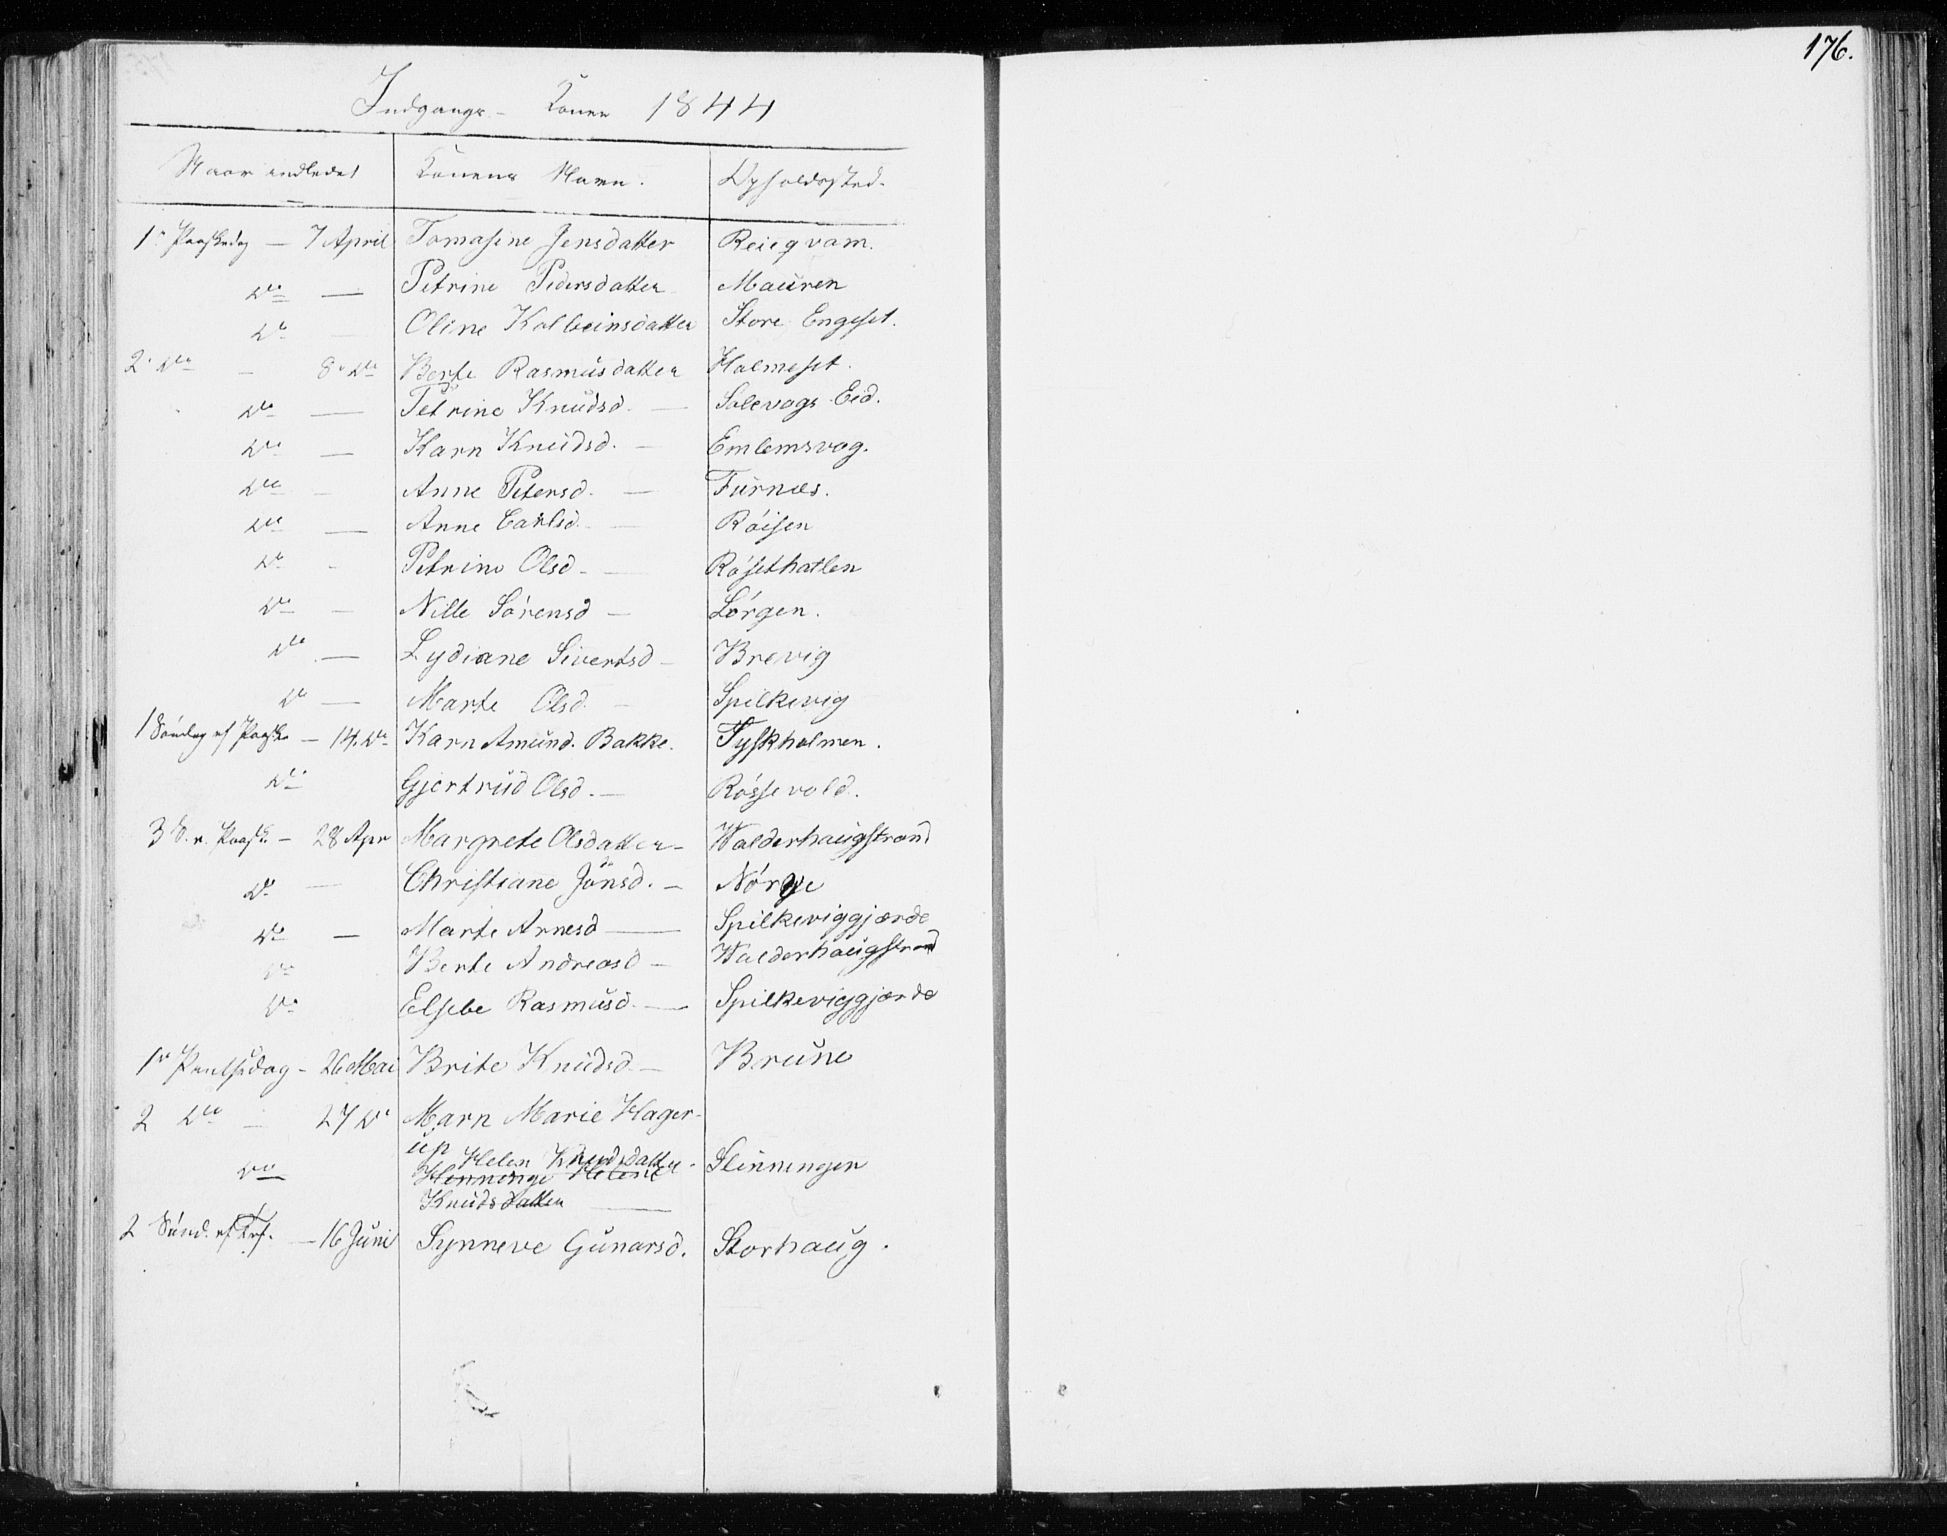 176.
Indgangs- Koner 1844
Naar indledet Konens Navn. Opholdssted.
1ste Paaskedag — 7 April Tomasine Jensdatter Reiegvam.
do — Petrine Pedersdatter Mauren
do — Oline Kolbeinsdatter Store Engeset.
2. do — 8. do Berte Rasmusdatter Holmeset.
do — Petrine Knudsd. — Solevogs Eid.
do — Karn Knudsd. — Emlemsvog.
do — Anne Petersd. — Furnæs.
do — Anne Carlsd. — Röisen
do - Petrine Olsd. — Rösethatlen
do — Nille Sörensd — Lörgen.
do — Lydiane Sivertsd — Brevig
do — Marte Olsd. — Spilkevig
1 Söndag ef Paaske — 14. do Karn Amund. Bakke. Tyskholmen.
do Gjertrud Olsd. — Rössevold.
3 S. e. Paask. — 28 Apr Margrete Olsdatter — Walderhaugstrand
do — Christiane Jönsd. — Nörve
do — Marte Arnesd — Spilkeviggjærde
do Berte Andreasd — Walderhaugstrand
do Elsebe Rasmusd. — Spilkeviggjærde
1ste Pentsedag - 26 Mai Brite Knudsd — Brune
2 do — 27 do Marn Marie Hager-
up
do Helen Knudsdatter. Slinningen
Henninge Helene
Knudsdatter —
2 Sönd. ef Tref. — 16 Juni Synneve Gunarsd. Storhaug.